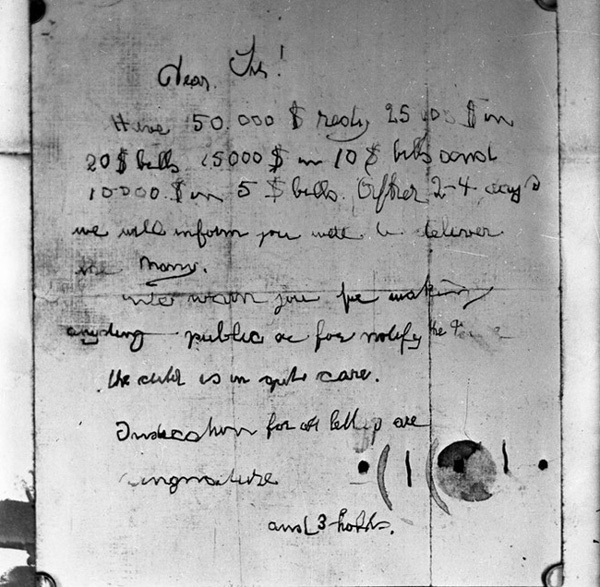 Dear Sir!
Have 50.000 $ redy 25 000 $ in
20 $ bills 15000 $ in 10 $ bills and
10000 $ in 5 $ bills. After 2-4 days
we will inform you were to deliver
the Mony.
We warn you for making
anyding public or for notify the
the child is in gute care.
Indication for all are
singnature
and 3 holds.